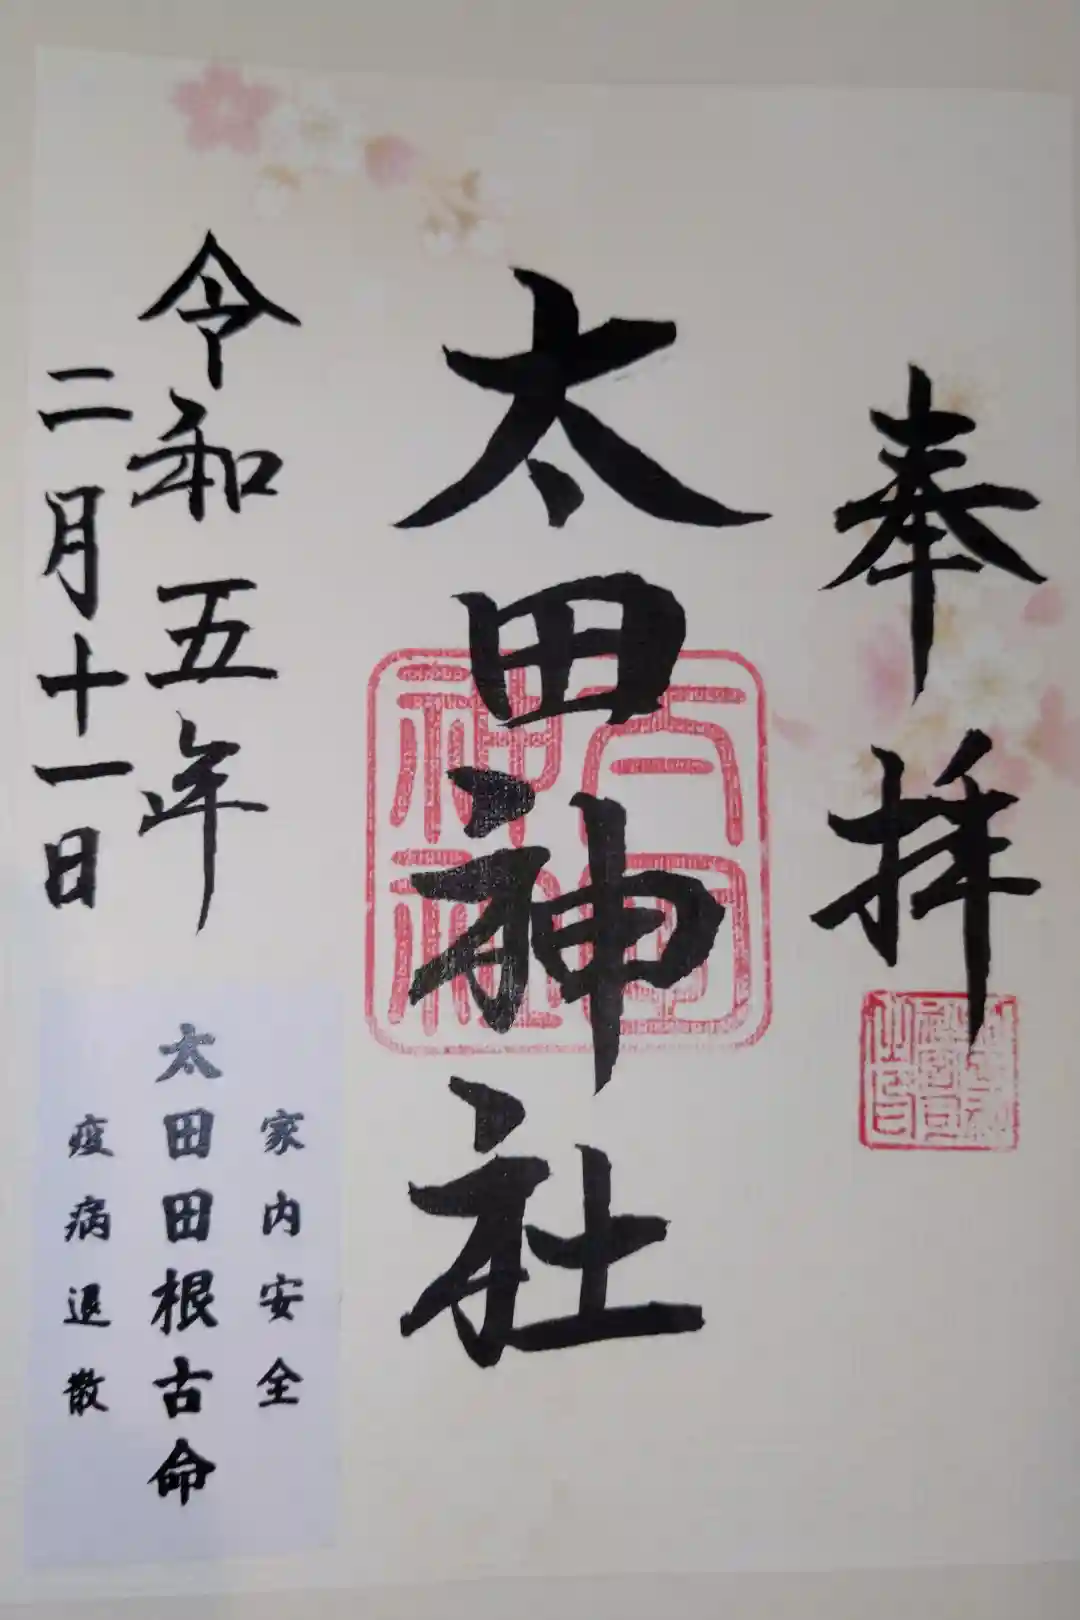 奉拝
太田神社
太田神社
令和五年
二月十一日
家内安全
太田田根古命
疫病退散